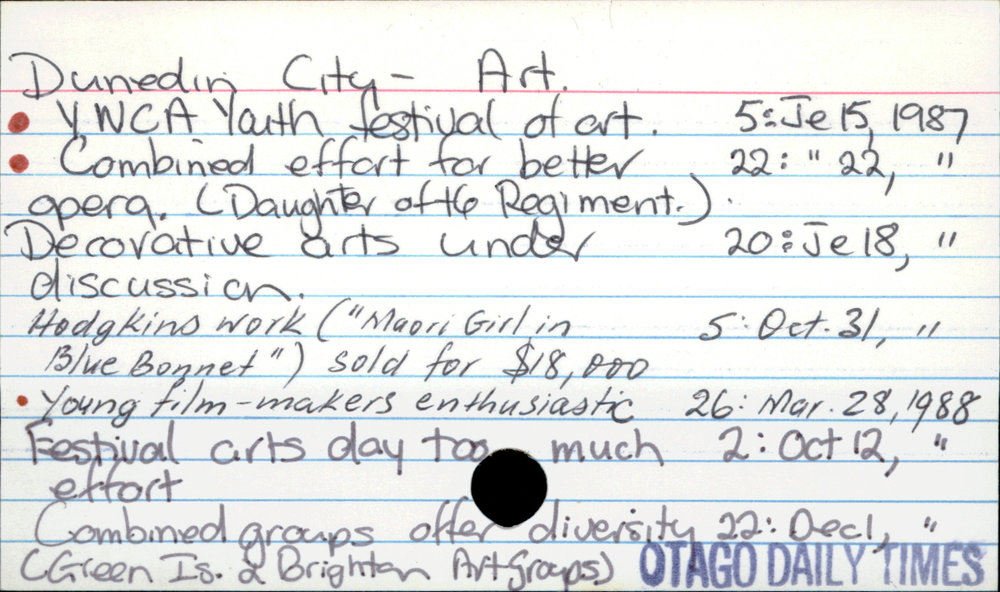 Dunedin City - Art.
• YWCA Youth festival of art. 5: Je 15, 1987
• Combined effort for better 22: " 22, "
opera. (Daughter of the Regiment.)
Decorative arts under 20: Je 18, "
discussion.
Hodgkins work ("Maori Girl in 5: Oct. 31, "
Blue Bonnet") sold for $18,000
• Young film-makers enthusiastic 26: Mar. 28, 1988
Festival arts day too much 2: Oct 12, "
effort
Combined groups offer diversity 22: Dec 1, "
(Green Is. & Brighton Art Groups) OTAGO DAILY TIMES